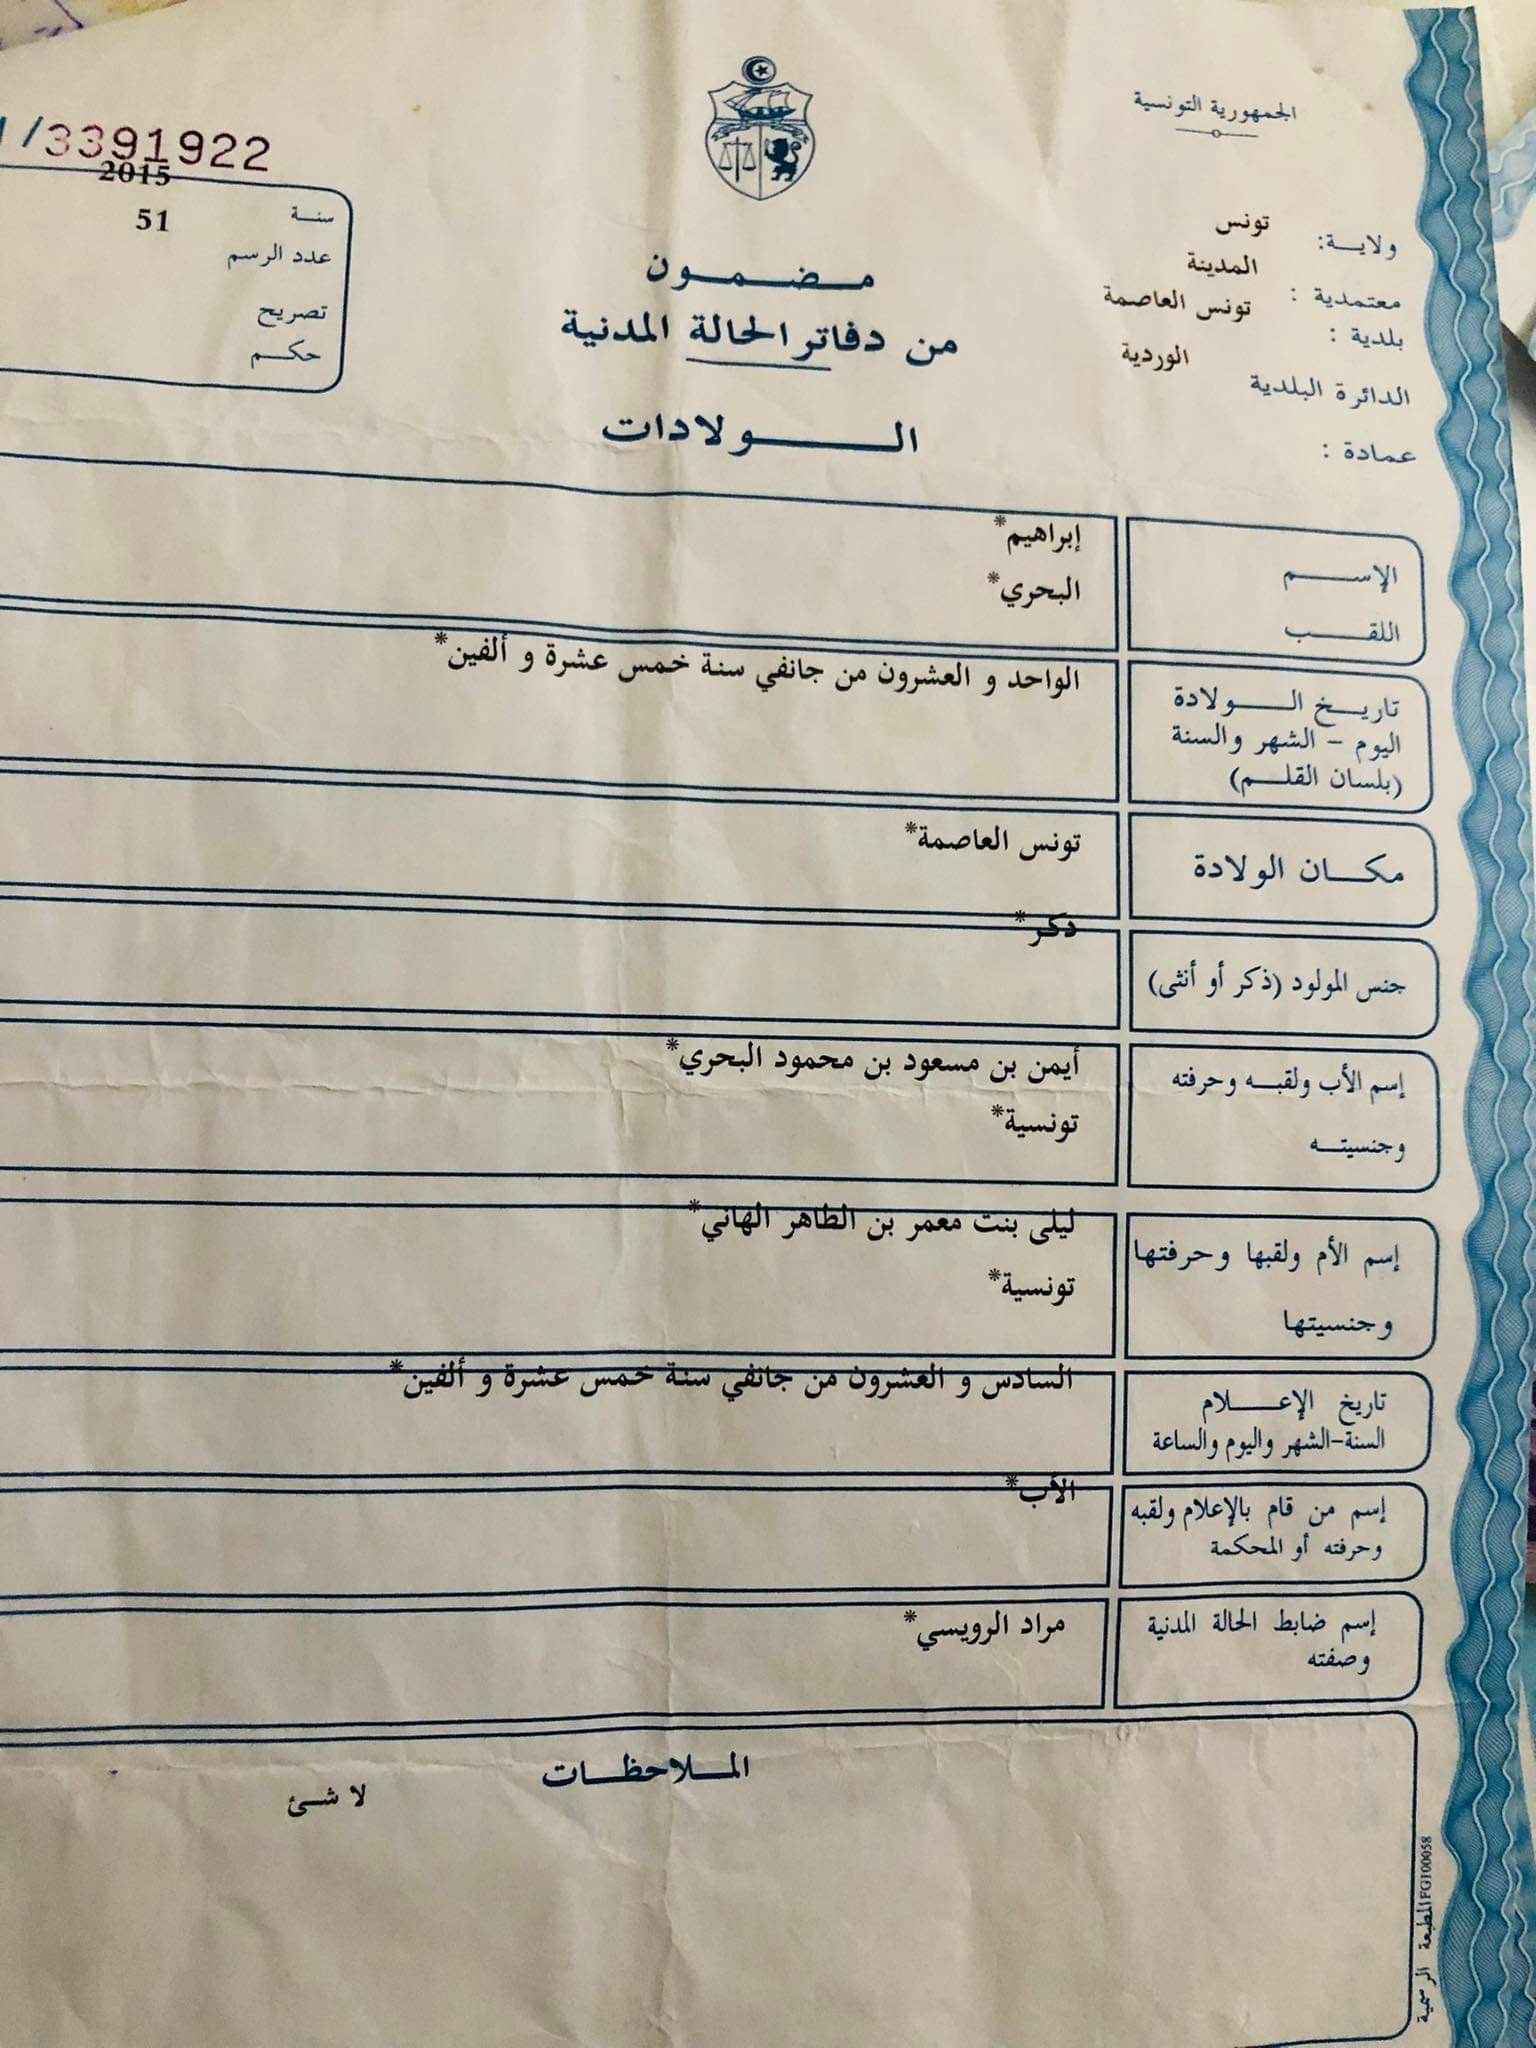 الجمهورية التونسية
ولاية: تونس
معتمدية : المدينة
بلدية : تونس العاصمة
الدائرة البلدية الوردية
عمادة :
/3391922
سنة 2015
عدد الرسم 51
تصريح
حكم
مضمون
من دفاتر الحالة المدنية
الولادات
الإسم إبراهيم*
اللقب البحري*
تاريخ الولادة الواحد و العشرون من جانفي سنة خمس عشرة و ألفين*
اليوم - الشهر والسنة
(بلسان القلم)
مكان الولادة تونس العاصمة*
جنس المولود (ذكر أو أنثى) ذكر*
إسم الأب ولقبه وحرفته أيمن بن مسعود بن محمود البحري*
وجنسيته تونسية*
إسم الأم ولقبها وحرفتها ليلى بنت معمر بن الطاهر الهاني*
وجنسيتها تونسية*
تاريخ الإعلام السادس و العشرون من جانفي سنة خمس عشرة و ألفين*
السنة-الشهر واليوم والساعة
إسم من قام بالإعلام ولقبه الأب*
وحرفته أو المحكمة
إسم ضابط الحالة المدنية مراد الرويسي*
وصفته
الملاحظات
لا شئ
المطبعة الرسمية FG100058